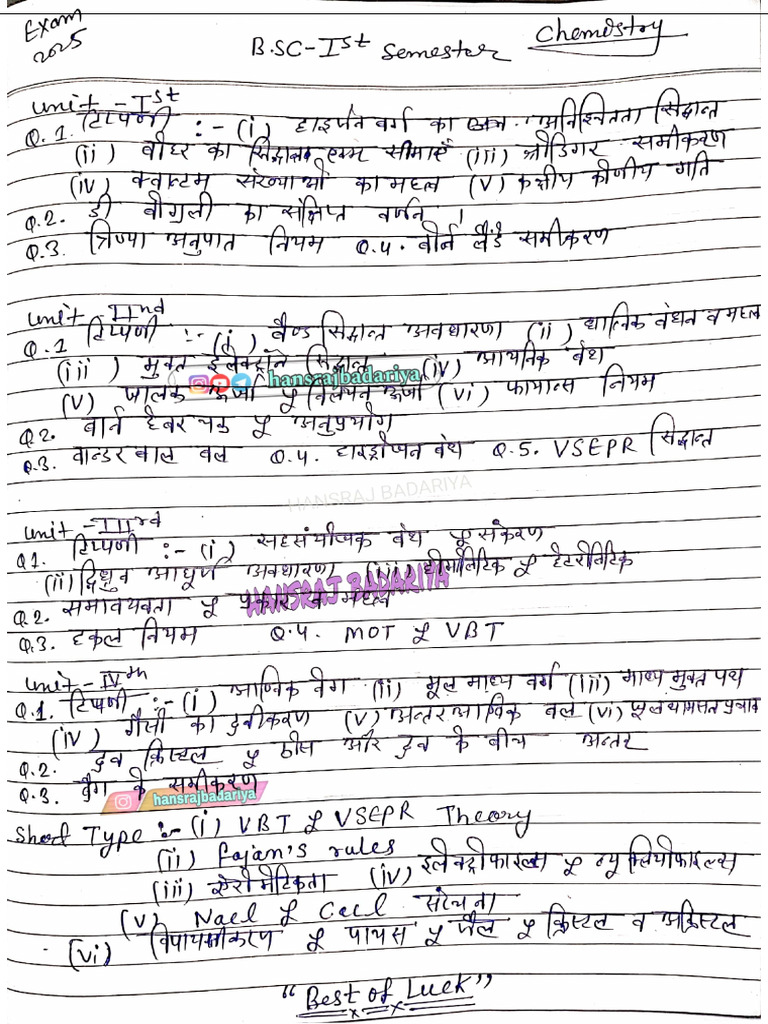 Exam
2025
B.SC-Ist Semester Chemistry
Unit-Ist
Q.1. टिप्पणी :- (i) हाइर्जनवर्ग का अनिश्चितता सिद्धान्त
(ii) बोहर का सिद्धान्त एवम सीमाएँ (iii) श्रोडिंगर समीकरण
(iv) क्वान्टम संख्याओं का महत्व (v) कक्षीय कोणीय गति
Q.2. डी बोगली का संक्षिप्त वर्णन
Q.3. त्रिज्या अनुपात नियम Q.4. बोर्न लैंडे समीकरण
Unit-IInd
Q.1 टिप्पणी :- (i) बैण्ड सिद्धान्त अवधारणा (ii) धात्विक बंधन व महत्व
(iii) मुक्त इलेक्ट्रॉन सिद्धान्त (iv) आयनिक बंध
hansrajbadariya
(v) जालक ऊर्जा & विलयन ऊर्जा (vi) फायान्स नियम
Q2. बार्न हेबर चक्र & अनुप्रयोग
Q.3. वान्डर वाल बल Q.4. हाइड्रोजन बंध Q.5. VSEPR सिद्धान्त
HANSRAJ BADARIYA
Unit-IIIrd
Q1. टिप्पणी :- (i) सहसंयोजक बंध & संकरण
(ii) द्विध्रुव आधूर्ण अवधारणा (iii) होमोलिटिक & हेटरोलिटिक
HANSRAJ BADARIYA
Q.2. समावयवता & प्रकार व महत्व
Q.3. हकल नियम Q.4. MOT & VBT
Unit-IVth
Q.1. टिप्पणी :- (i) आण्विक वेग (ii) मूल माध्य वर्ग (iii) माध्य मुक्त पथ
(iv) गैसों का द्रवीकरण (v) अन्तर आण्विक बल (vi) जूल थामसन प्रभाव
Q.2. द्रव क्रिस्टल & ठोस और द्रव के बीच अन्तर
Q.3. ब्रैग के समीकरण
hansrajbadariya
Short Type :- (i) VBT & VSEPR Theory
(ii) Fajan's rules
(iii) ऐरोमेटिकता (iv) इलेक्ट्रोफाइल्स & न्यूक्लियोफाइल्स
(v) Nacl & Cscl संरचना
(vi) विपायसीकरण & पायस & जैल & क्रिस्टल व अक्रिस्टल
"Best of Luck"